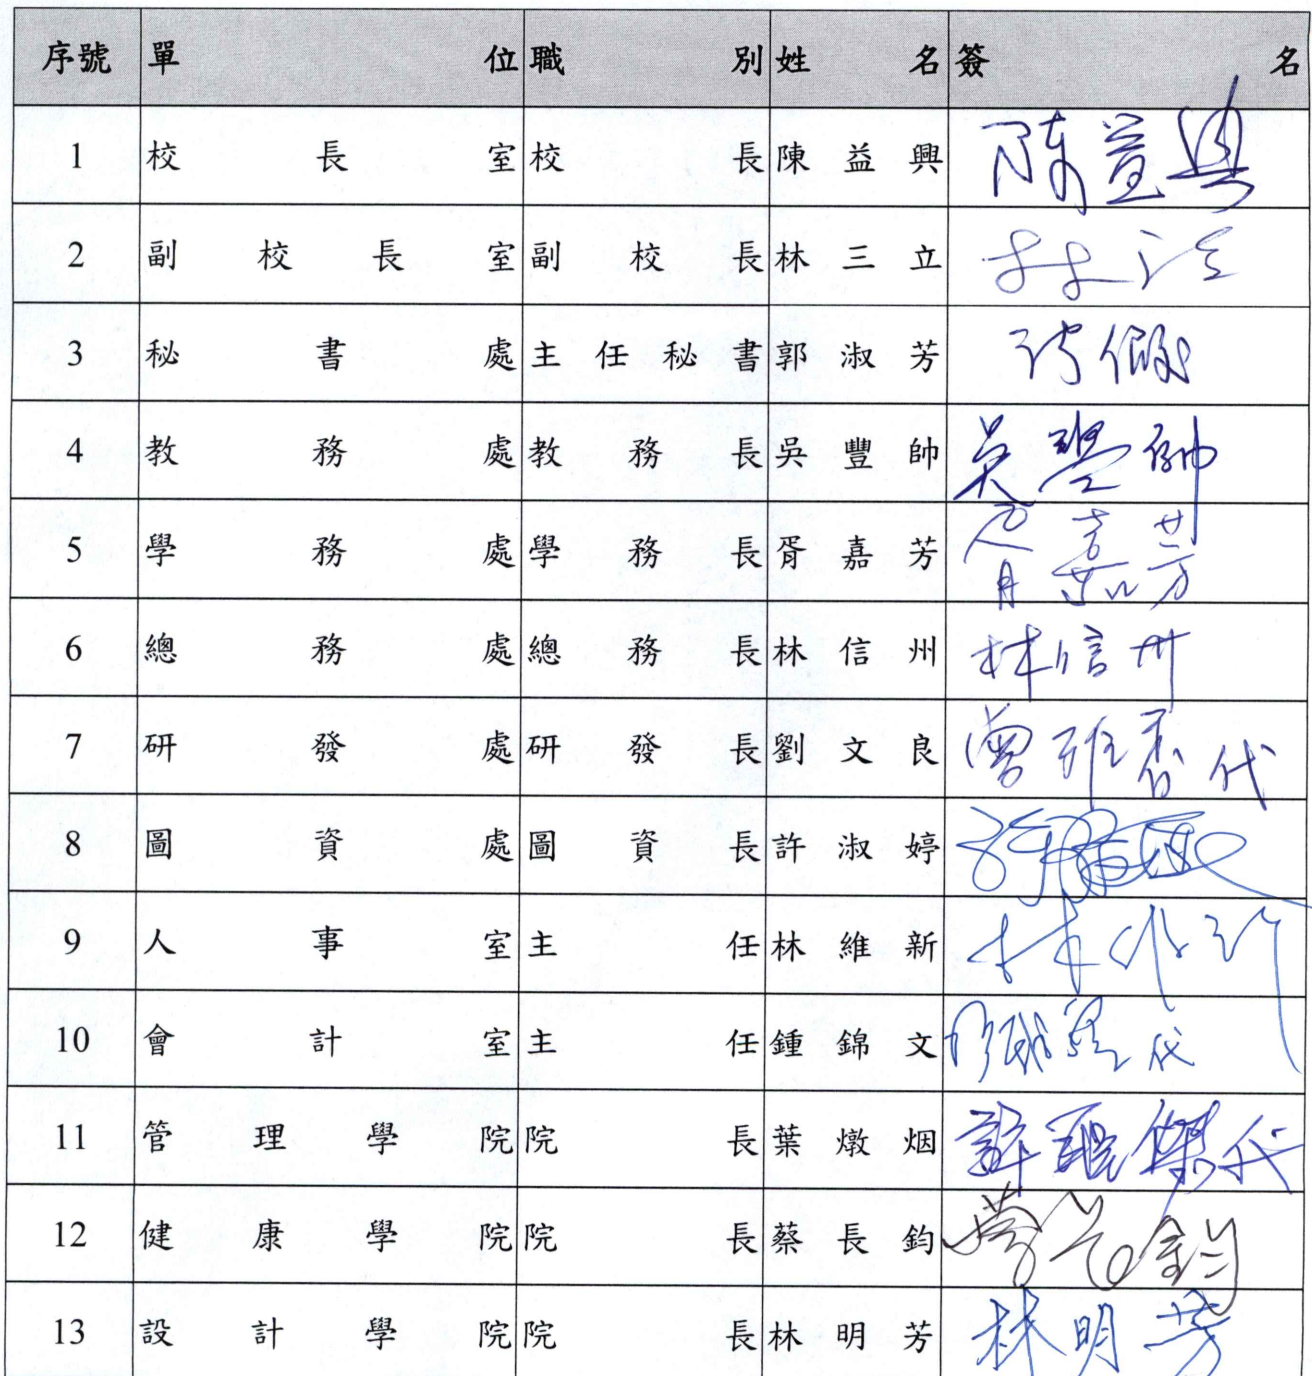 序號 單位 職別 姓名 簽名
1 校長室 校長 陳益興 陳益興
2 副校長室 副校長 林三立 林三立
3 秘書處 主任秘書 郭淑芳 請假
4 教務處 教務長 吳豐帥 吳豐帥
5 學務處 學務長 胥嘉芳 胥嘉芳
6 總務處 總務長 林信州 林信州
7 研發處 研發長 劉文良 曾雅香代
8 圖資處 圖資長 許淑婷
9 人事室 主任 林維新 林維新
10 會計室 主任 鍾錦文 代
11 管理學院 院長 葉燉烟 代
12 健康學院 院長 蔡長鈞 蔡長鈞
13 設計學院 院長 林明芳 林明芳